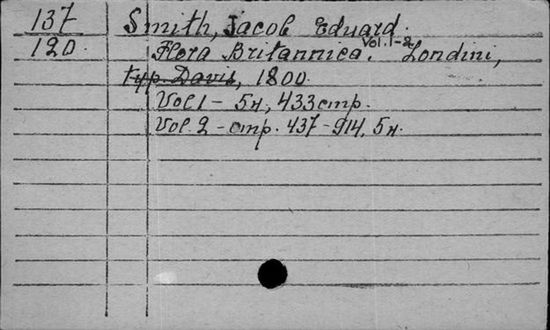 137
120.
Smith, Jacob Eduard.
Flora Britannica. Vol. 1-2. Londini,
typ. Davis, 1800.
Vol 1 - 5н, 433 стр.
Vol. 2 - стр. 437-914, 5н.